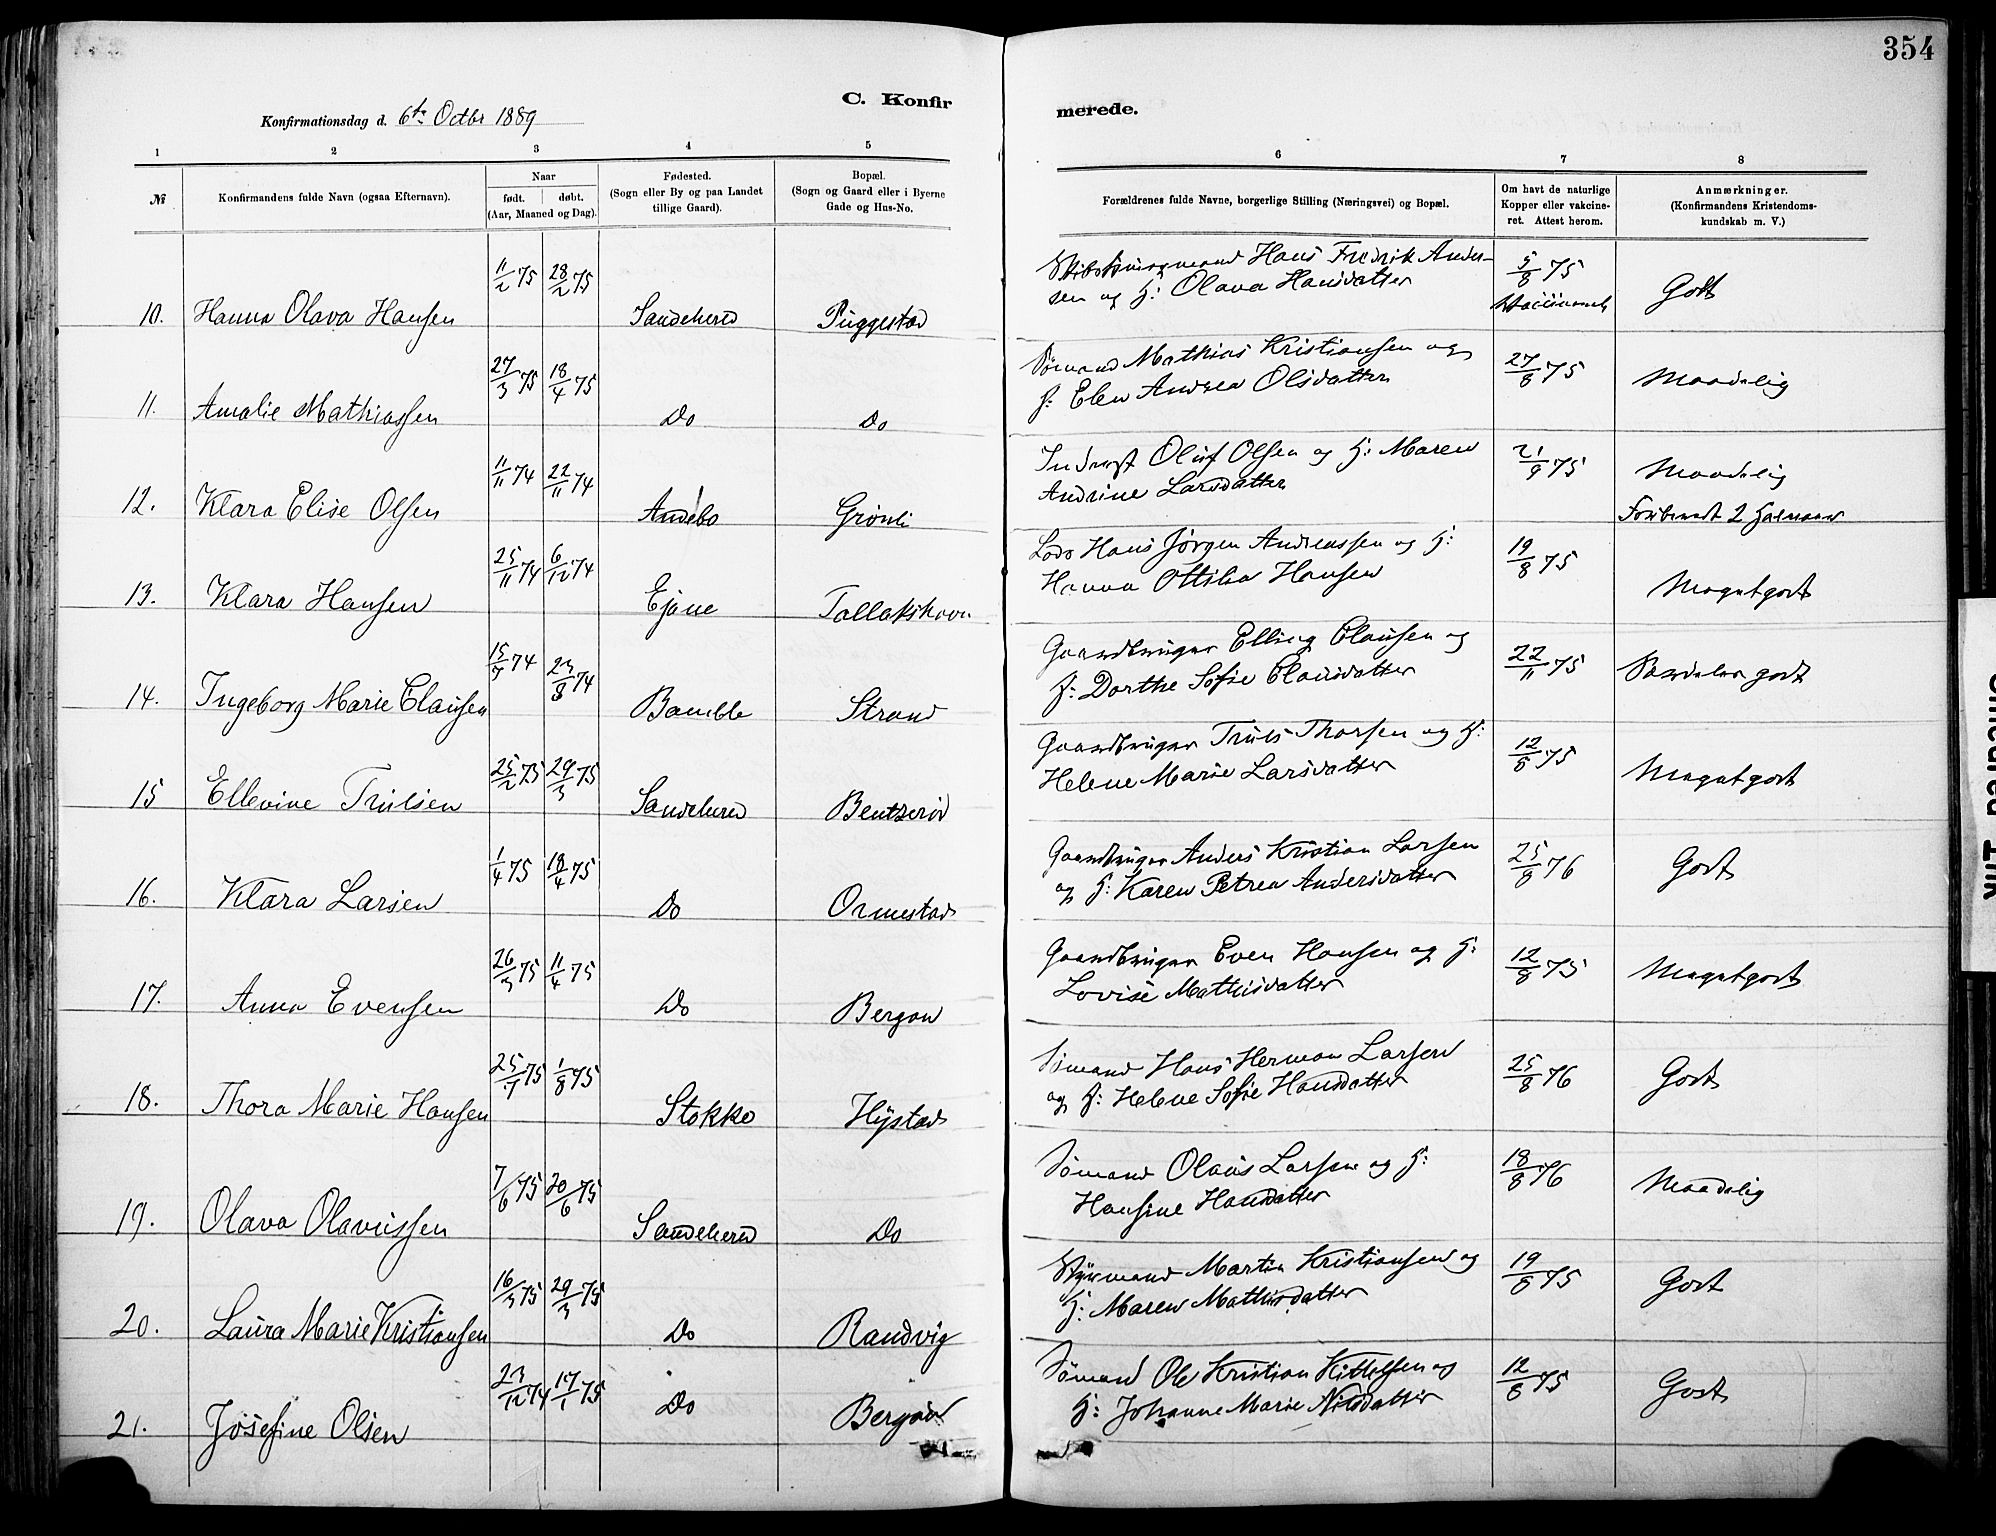 354
C. Konfirmerede.
Konfirmationsdag d. 6te Octbr 1889
1 2 3 4 5 6 7 8
№
Konfirmandens fulde Navn (ogsaa Efternavn).
Naar
født. døbt.
(Aar, Maaned og Dag).
Fødested.
(Sogn eller By og paa Landet
tillige Gaard).
Bopæl.
(Sogn og Gaard eller i Byerne
Gade og Hus-No.
Forældrenes fulde Navne, borgerlige Stilling (Næringsvei) og Bopæl.
Om havt de naturlige
Kopper eller vakcine-
ret. Attest herom.
Anmærkninger.
(Konfirmandens Kristendoms-
kundskab m. V.)
10. Hanna Olava Hansen 11/2 75 28/2 75 Sandeherred Puggestad
Hans Fredrik Ander-
sen og H: Olava Hansdatter 5/8 75 Godt
11. Amalie Mathiassen 27/3 75 18/4 75 Do Do
Sømand Mathias Kristiansen og
H: Elen Andrea Olsdatter 27/8 75 Maadelig
12. Klara Elise Olsen 11/11 74 22/11 74 Andebo Grønli
Inderst Oluf Olsen og H: Maren
Andrine Larsdatter 21/9 75 Maadelig
13. Klara Hansen 25/11 74 6/12 74 Ejøne Tallakshavn
Lods Hans Jørgen Andreassen og H:
Hanna Ottilia Hansen 19/8 75 Megetgodt
14. Ingeborg Marie Clausen 15/7 74 23/8 74 Bamble Strand
Gaardbruger Elling Clausen og
H: Dorthe Sofie Clausdatter 22/11 75 Særdeles godt
15 Ellevine Trulsen 25/2 75 29/3 75 Sandeherred Bentserød
Gaardbruger Truls Thorsen og H:
Helene Marie Larsdatter 12/8 75 Megetgodt
16. Klara Larsen 1/4 75 18/4 75 Do Ormestad
Gaardbruger Anders Kristian Larsen
og H: Karen Petrea Andersdatter 25/8 76 Godt
17. Anna Evensen 26/3 75 11/4 75 Do Bergan
Gaardbruger Even Hansen og H:
Lovise Mathisdatter 12/8 75 Megetgodt
18. Thora Marie Hansen 25/7 75 1/8 75 Stokke Hystad
Sømand Hans Herman Larsen
og H: Helene Sofie Hansdatter 25/8 76 Godt
19. Olava Olaussen 7/6 75 20/6 75 Sandeherred Do
Sømand Olaus Larsen og H:
Hansine Hansdatter 18/8 76 Maadelig
20. Laura Marie Kristiansen 16/3 75 29/3 75 Do Randvig
Styrmand Martin Kristiansen og
H: Maren Mathisdatter 19/8 75 Godt
21. Josefine Olsen 23/12 74 17/1 75 Do Bergan
Sømand Ole Kristian Kittelsen og
H: Johanne Marie Nilsdatter 12/8 75 Godt